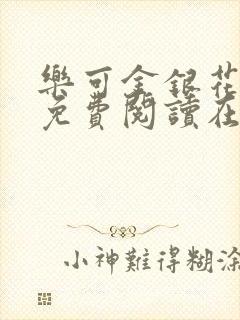 樂可金銀花
免費閱讀在
小神難得糊涂